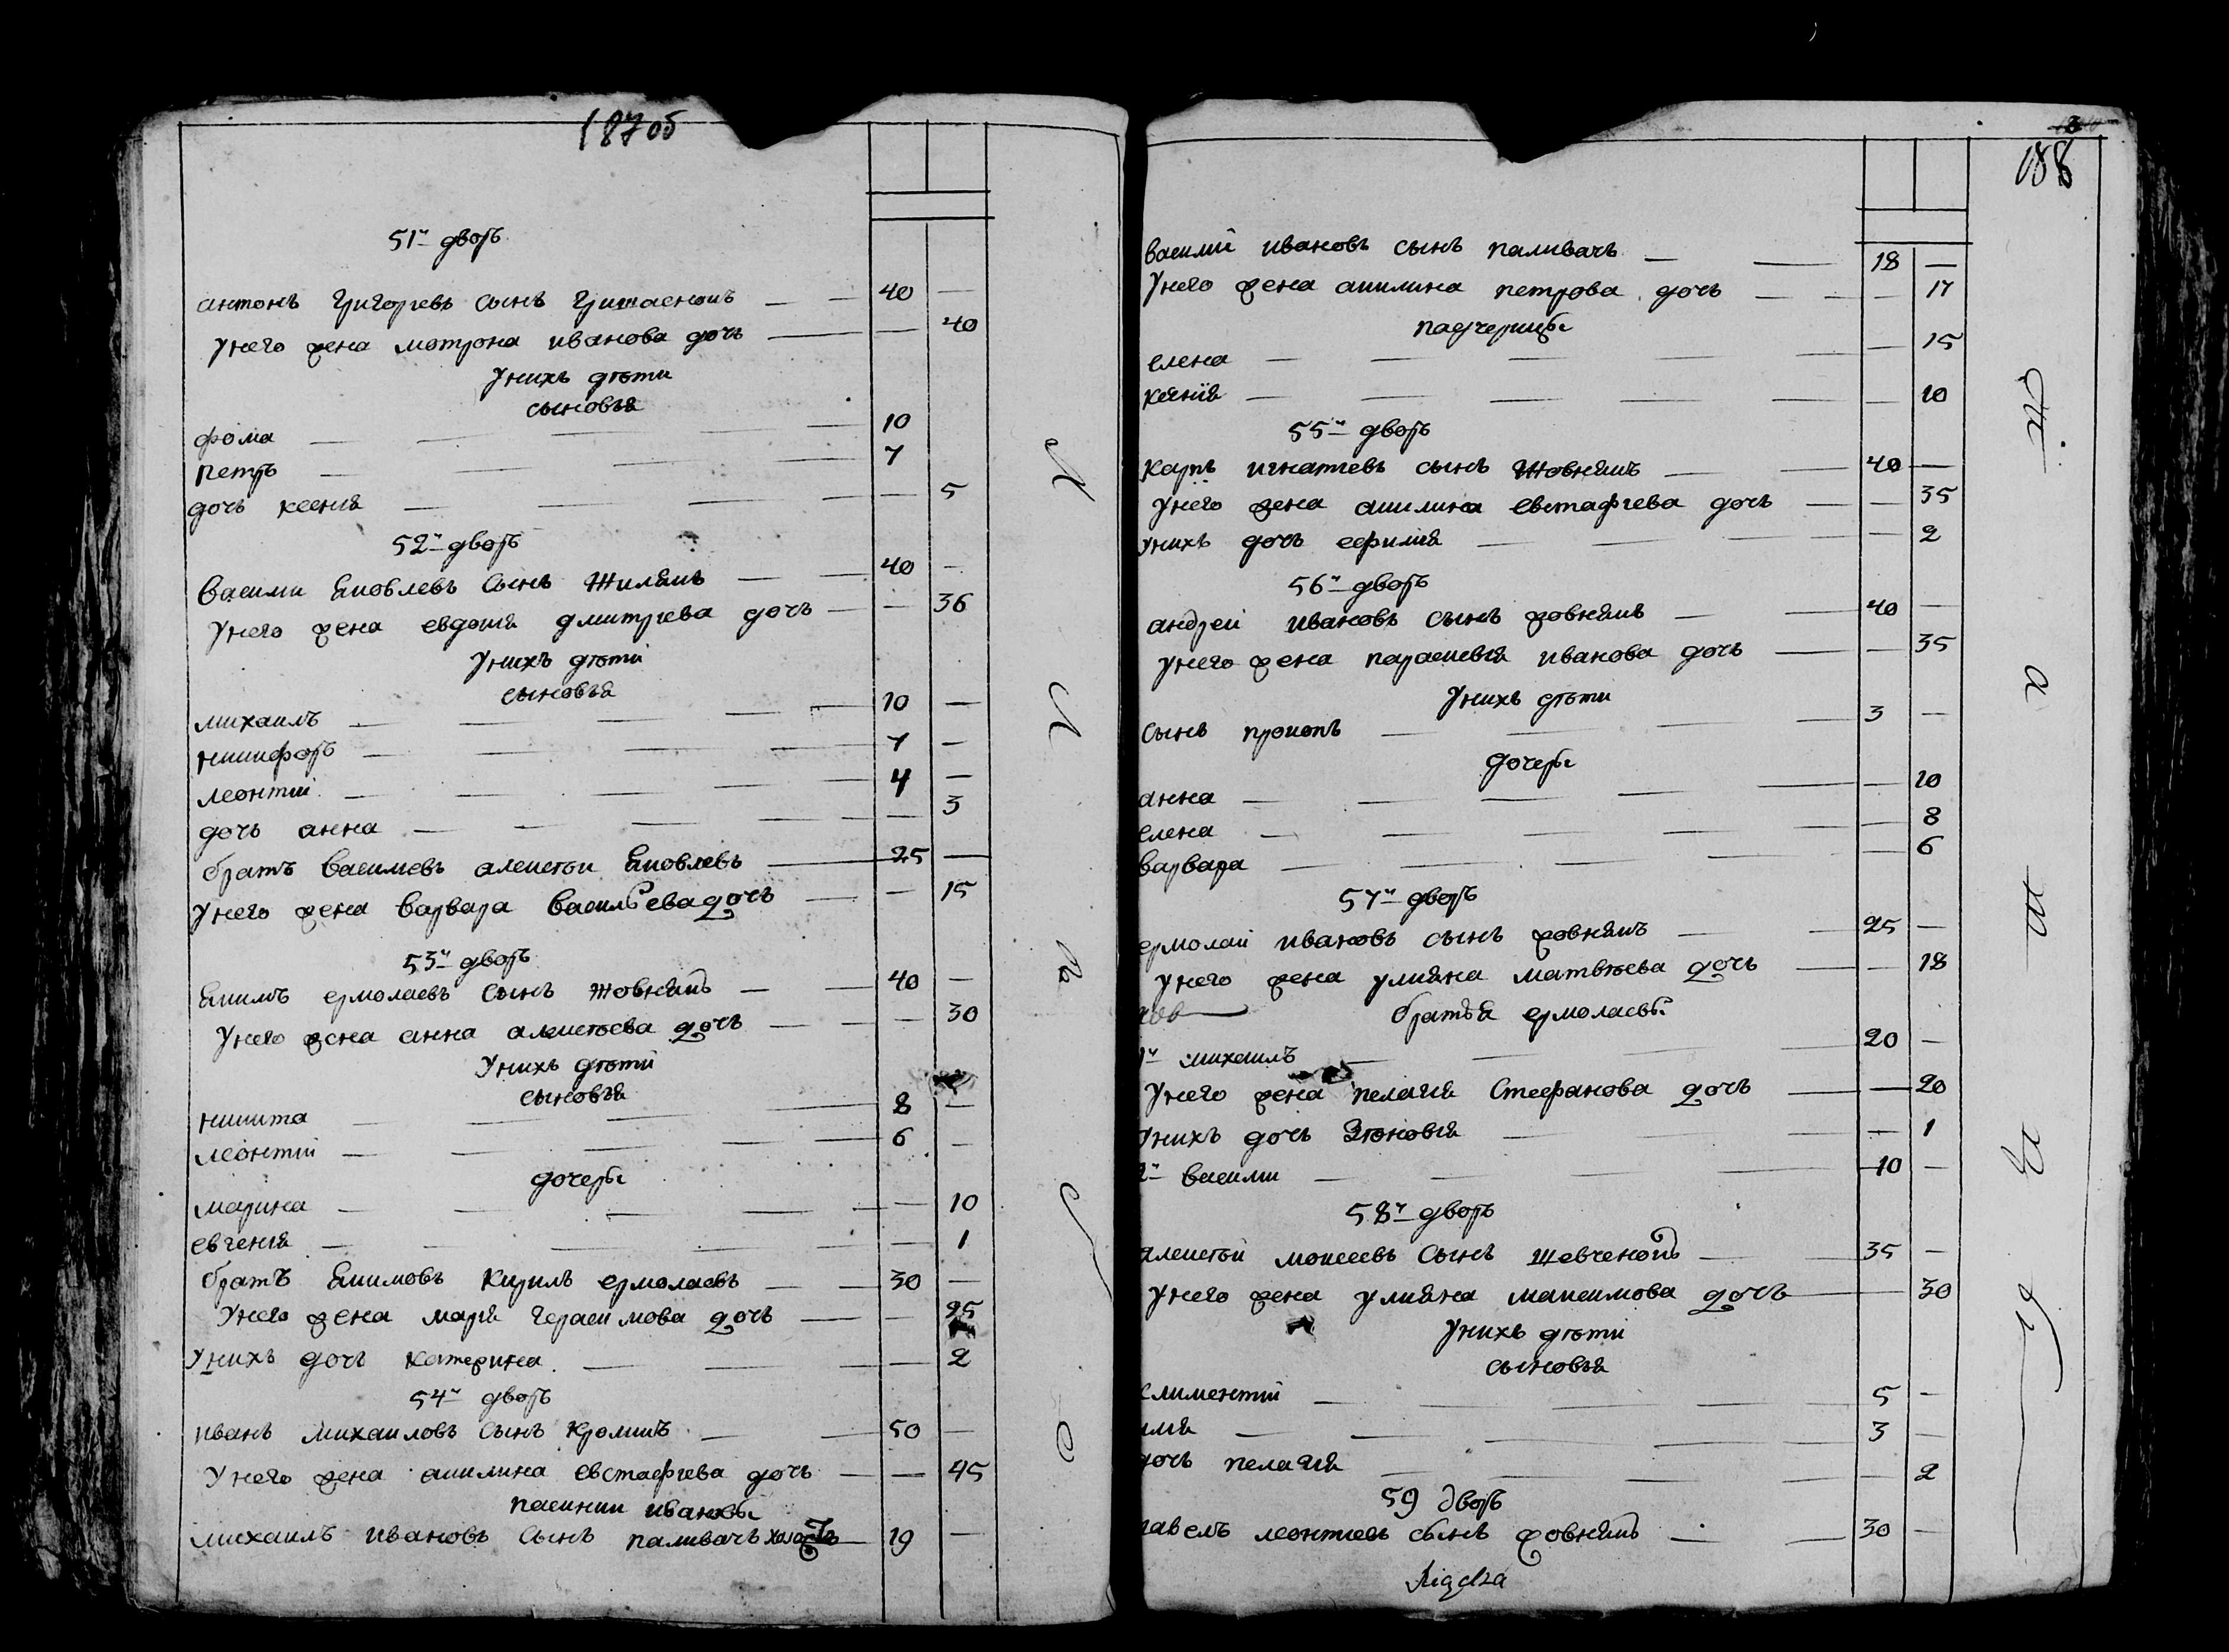 187об
51й дворъ
антонъ григориевъ сынъ гришаенокъ — — 40 —
унего жена мотрона иванова дочь — — 40
унихъ дѣти
сыновья
фома — — — 10
петръ — — — 7
дочь ксения — — — 5
52й дворъ
василии яковлевъ сынъ жилякъ — — 40 —
унего жена евдокия дмитриева дочь — — 36
унихъ дѣти
сыновья
михаилъ — — — 10 —
никифоръ — — — 7 —
леонтий — — — 4 —
дочь анна — — — 3
братъ василиевъ алексѣи яковлевъ — 25 —
унего жена варвара васильева дочь — — 15
53й дворъ
якимъ ермолаевъ сынъ жовнякъ — — 40 —
унего жена анна алексѣева дочь — — 30
унихъ дѣти
сыновья
никита — — — 8 —
леонтий — — — 6 —
дочеры
марина — — — 10
евгения — — — 1
братъ якимовъ кирилъ ермолаевъ — — 30 —
унего жена мария герасимова дочь — — 25
унихъ дочь катерина — — — 2
54й дворъ
иванъ михаиловъ сынъ кромикъ — — 50 —
унего жена акилина евстафиева дочь — — 45
пасинки ивановы
михаилъ ивановъ сынъ паливачъ холостъ — 19 —
188
василий ивановъ сынъ паливачъ — — 18 —
унего жена акилина петрова дочь — — — 17
падчерицы
елена — — — — 15
ксения — — — — 10
55й дворъ
карпъ игнатиевъ сынъ жовнякъ — — 40 —
унего жена акилина евстафиева дочь — — 35
унихъ дочь ефимия — — — 2
56й дворъ
андрей ивановъ сынъ жовнякъ — — 40 —
унего жена параскевия иванова дочь — — 35
унихъ дѣти
сынъ прокопъ — — — 3 —
дочеры
анна — — — — 10
елена — — — — 8
варвара — — — — 6
57й дворъ
ермолай ивановъ сынъ жовнякъ — — 25 —
унего жена улияна матвѣева дочь — — 18
братья ермолаевы
1й михаилъ — — — 20 —
унего жена пелагия стефанова дочь — — 20
унихъ дочь зѣновия — — — 1
2й василии — — — 10 —
58й дворъ
алексѣй моисеевъ сынъ шевченокъ — 35 —
унего жена улияна максимова дочь — 30
унихъ дѣти
сыновья
климентий — — — 5 —
илия — — — 3 —
дочь пелагия — — — 2
59 дворъ
павелъ леонтиевъ сынъ жовнякъ — — 30 —